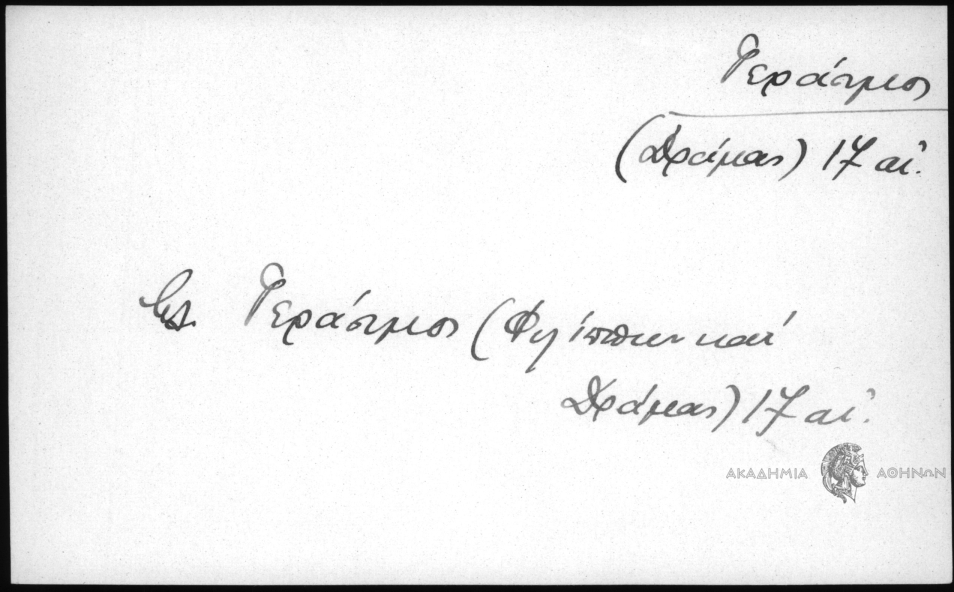 Γεράσιμος
(Δράμας) 17 αἰ.
βλ. Γεράσιμος (Φιλίππων καὶ
Δράμας) 17 αἰ.
ΑΚΑΔΗΜΙΑ ΑΘΗΝΩΝ